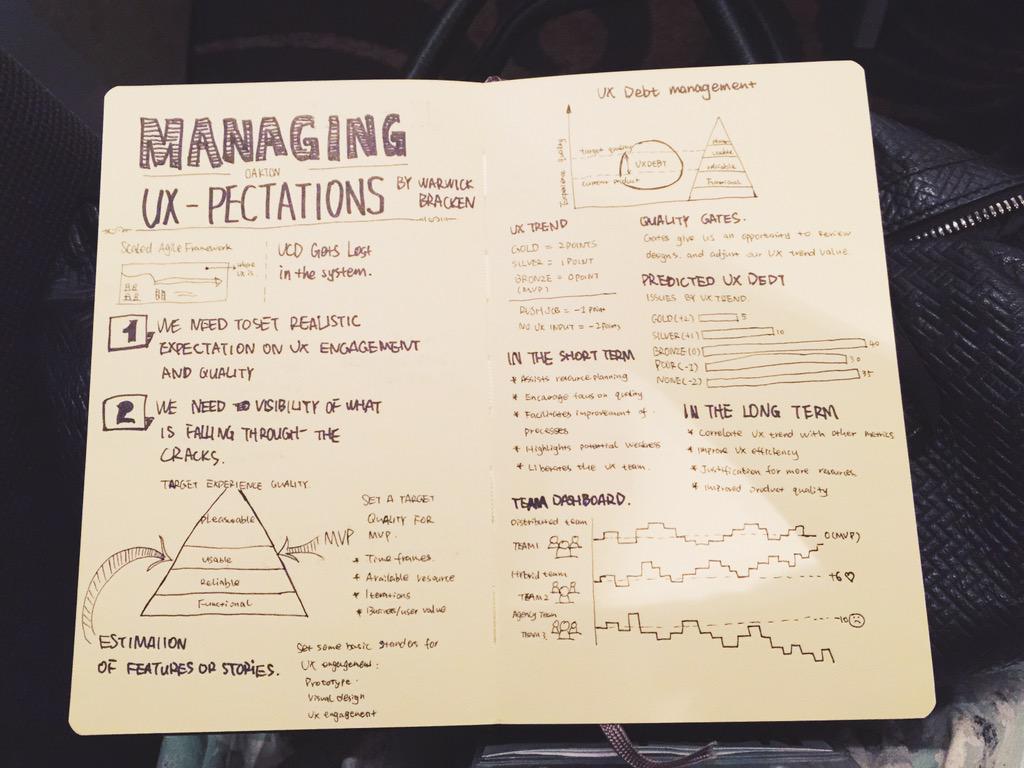 MANAGING
OAKTON
UX-PECTATIONS
BY WARWICK
BRACKEN
Scaled Agile Framework
where
UX is.
UCD Gets Lost
in the system.
1 WE NEED TO SET REALISTIC
EXPECTATION ON UX ENGAGEMENT
AND QUALITY
2 WE NEED TO VISIBILITY OF WHAT
IS FALLING THROUGH THE
CRACKS.
TARGET EXPERIENCE QUALITY.
Pleasurable
usable
Reliable
Functional
MVP
SET A TARGET
QUALITY FOR
MVP.
* Time frames.
* Available resource
* Iterations
* Business/user value
ESTIMATION
OF FEATURES OR STORIES.
Set some basic standers for
UX engagement:
Prototype.
Visual design
UX engagement
UX Debt management
Experience Quality
target quality
UX DEBT
current product
usable
reliable
Functional
UX TREND
GOLD = 2 POINTS
SILVER = 1 POINT
BRONZE = 0 POINT
(MVP)
RUSH JOB = -1 Point
NO UX INPUT = -2 Points
QUALITY GATES.
Gates give us an opportunity to review
designs. and adjust our UX trend value.
PREDICTED UX DEDT
ISSUES BY UX TREND.
GOLD (+2) 5
SILVER (+1) 10
BRONZE (0) 40
POOR (-1) 30
NONE (-2) 35
IN THE SHORT TERM
* Assists resource planning
* Encourage focus on quality
* Facilitates improvement of
processes
* Highlights potential weakness
* Liberates the UX team.
IN THE LONG TERM
* Correlate UX trend with other metrics
* Improve UX efficiency
* Justification for more resources
* Improved product quality
TEAM DASHBOARD.
Distributed team
TEAM 1
0 (MVP)
Hybrid team
TEAM 2
+6
Agency Team
TEAM 3
-10